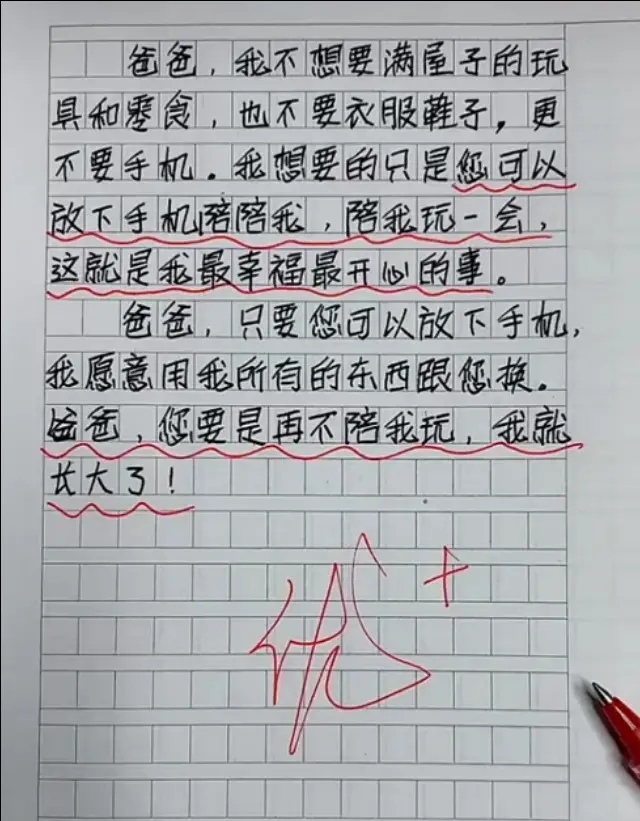 爸爸，我不想要满屋子的玩
具和零食，也不要衣服鞋子，更
不要手机。我想要的只是您可以
放下手机陪陪我，陪我玩一会，
这就是我最幸福最开心的事。
爸爸，只要您可以放下手机，
我愿意用我所有的东西跟您换。
爸爸，您要是再不陪我玩，我就
长大了！
优+